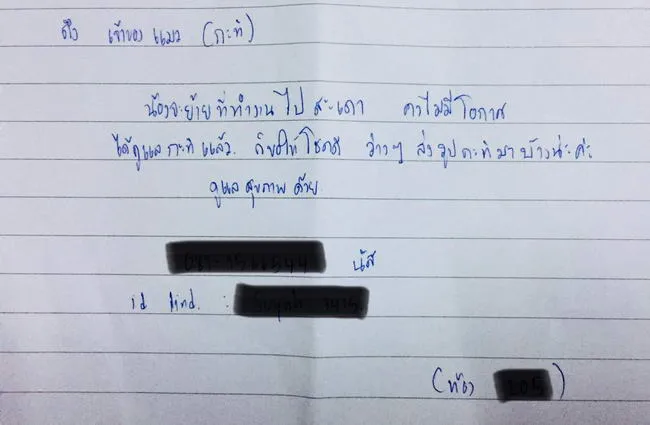 ถึง เจ้าของแมว (กะทิ)
น้องจะย้ายที่ทำงานไป สะเดา คงไม่มีโอกาส
ได้ดูแลกะทิแล้ว. ก็ขอให้โชคดี ว่างๆ ส่งรูปกะทิมาบ้างน่ะค่ะ
ดูแลสุขภาพด้วย
นัส
id lind. :
(ห้อง )